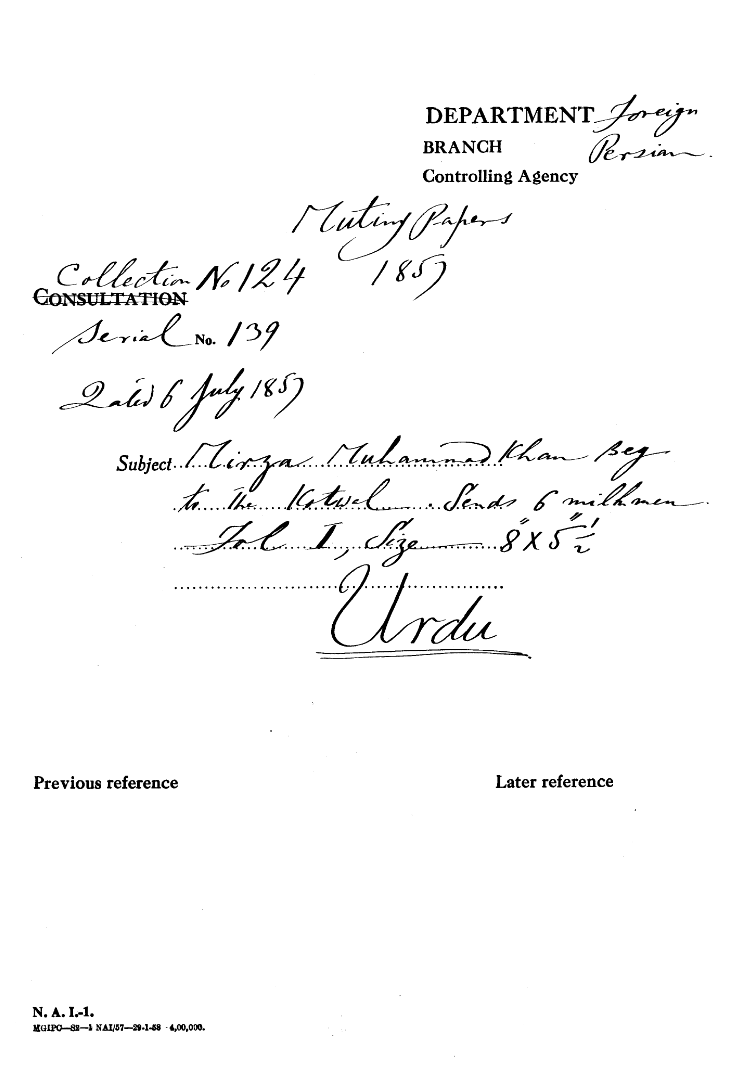 DEPARTMENT Foreign
BRANCH Persian.
Controlling Agency
Mutiny Papers
1857
Collection No 124
CONSULTATION
Serial No. 139
Dated 6 July 1857
Subject Mirza Muhammad Khan Beg
to the Kotwal. Sends 6 milkmen
Fol I, Size 8" X 5" ½
Urdu
Previous reference
Later reference
N. A. I.-1.
MGIPC—S2—1 NAI/57—29-1-58 - 4,00,000.